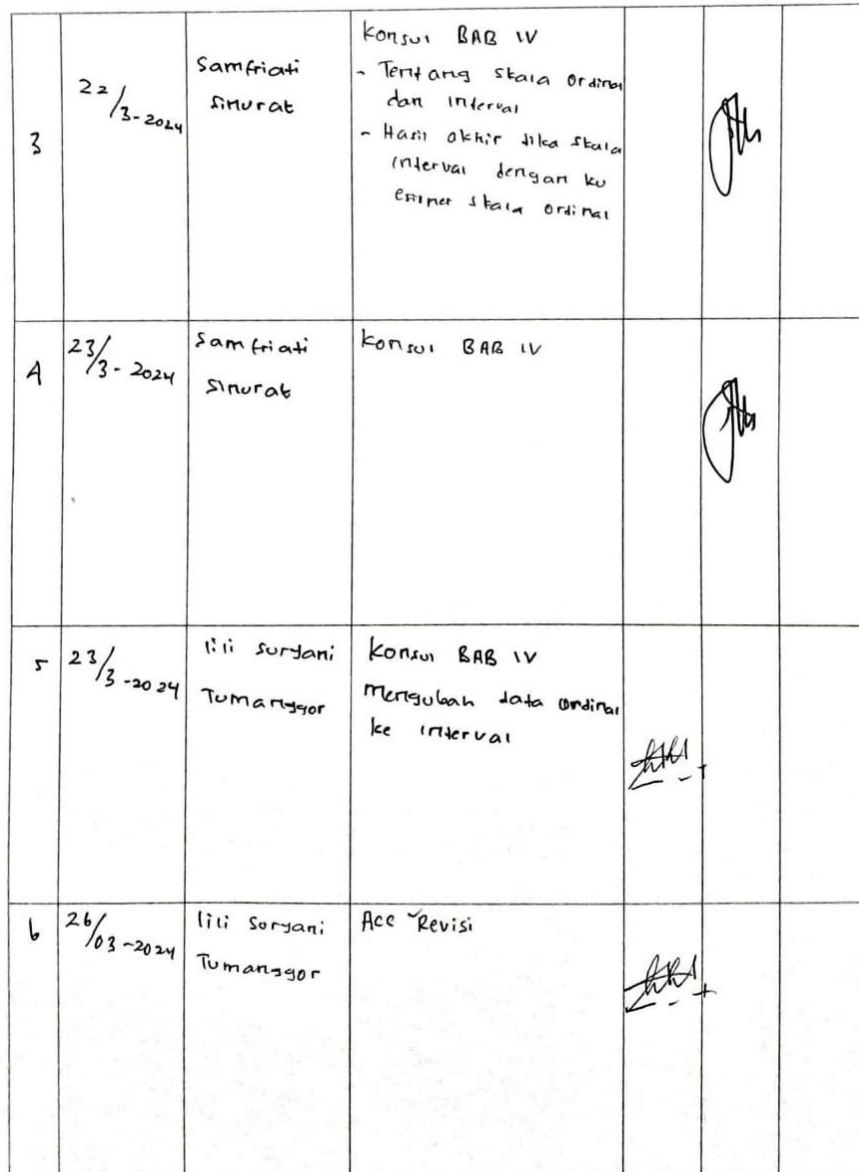 3
22/3-2024
Samfriati
Sinurat
Konsul BAB IV
- Tentang skala ordinal
dan interval
- Hasil akhir jika skala
interval dengan ku
esioner skala ordinal
4
23/3-2024
Samfriati
Sinurat
Konsul BAB IV
5
23/3-2024
lili suryani
Tumanggor
Konsul BAB IV
Mengubah data ordinal
ke interval
6
26/03-2024
lili suryani
Tumanggor
Acc Revisi